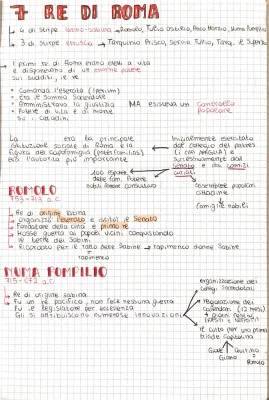 7 RE DI ROMA
4 di stirpe latino-sabina → Romolo, Tullo Ostilio, Anco Marzio, Numa Pompilio
3 di stirpe etrusca → Tarquinio Prisco, Servio Tullio, Tarq. il Superbo
I primi re di Roma erano eletti a vita
e disponevano di un enorme potere
sui sudditi, il re
• Comanda l'esercito (imperium)
• Era il Sommo Sacerdote
• Amministrava la giustizia MA esisteva un controllo
popolare
• Potere di vita e di morte
su i cittadini
La era la principale
istituzione sociale di Roma e la
figura del capofamiglia (paterfamilias)
era l'autorità più importante
Inizialmente esercitato
dal collegio dei patres
e successivamente dal
senato e dai comizi
curiati
100 esponenti
delle fam. Potere
nobili
assemblee popolari
cittadine
famiglie nobili
ROMOLO
753-713 a.C.
Re di origine latina
Organizzò l'esercito e istituì il Senato
Fondatore della città e primo re
Mosse guerra ai popoli vicini conquistando
le terre dei Sabini
Ricordato per il ratto delle Sabine → rapimento donne Sabine
rapimento
NUMA POMPILIO
715-672 a.C.
Re di origine sabina
Fu un re pacifico, non fece nessuna guerra
Fu il legislatore per eccellenza
Gli si attribuiscono numerose innovazioni
organizzazione dei
collegi sacerdotali
regolazione del
calendario (12 mesi)
+ giorni
il culto per una prima
triade capitolina
Giove
Marte
Quirino
Romolo